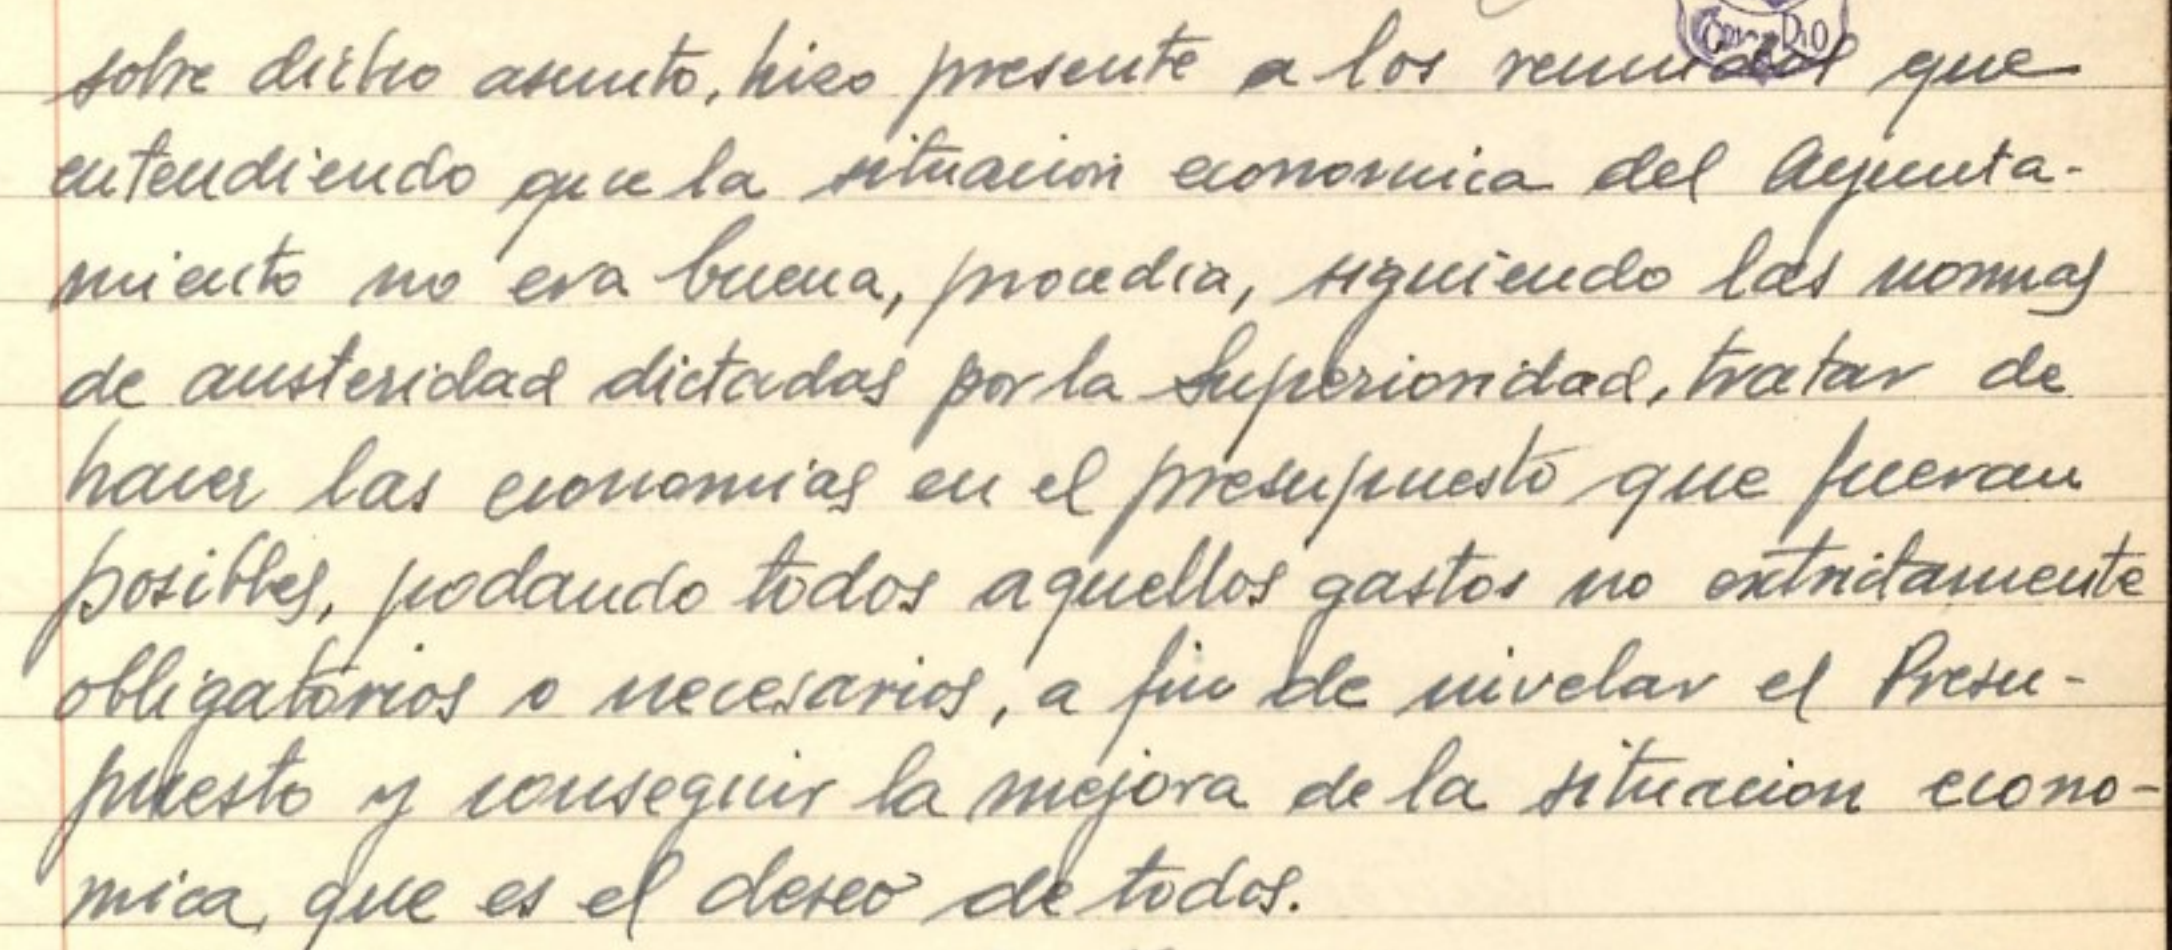 sobre dicho asunto, hizo presente a los reunidos que
entendiendo que la situacion economica del Ayunta-
miento no era buena, procedia, siguiendo las normas
de austeridad dictadas por la Superioridad, tratar de
hacer las economias en el presupuesto que fueran
posibles, podando todos aquellos gastos no extrictamente
obligatorios o necesarios, a fin de nivelar el Presu-
puesto y conseguir la mejora de la situacion econo-
mica, que es el deseo de todos.